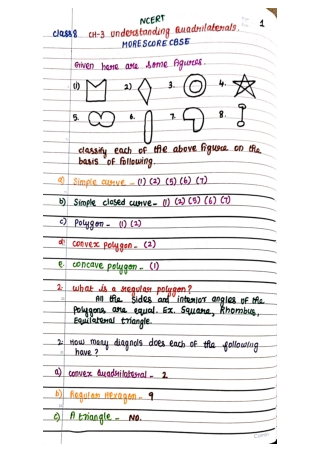 NCERT
1
Class 8 CH-3 Understanding Quadrilaterals.
MORE SCORE CBSE
Given here are some figures.
(1) 2) 3. 4.
5. 6. 7. 8.
classify each of the above figure on the
basis of following.
a) Simple curve - (1) (2) (5) (6) (7)
b) Simple closed curve - (1) (2) (5) (6) (7)
c) Polygon - (1) (2)
d. convex polygon - (2)
e. concave polygon - (1)
2. what is a regular polygon?
All the sides and interior angles of the
Polygons are equal. Ex. Square, Rhombus,
Equilateral triangle.
2. How many diagnols does each of the following
have?
a) convex Quadrilateral - 2
b) Regular Hexagon - 9
c) A triangle - No.